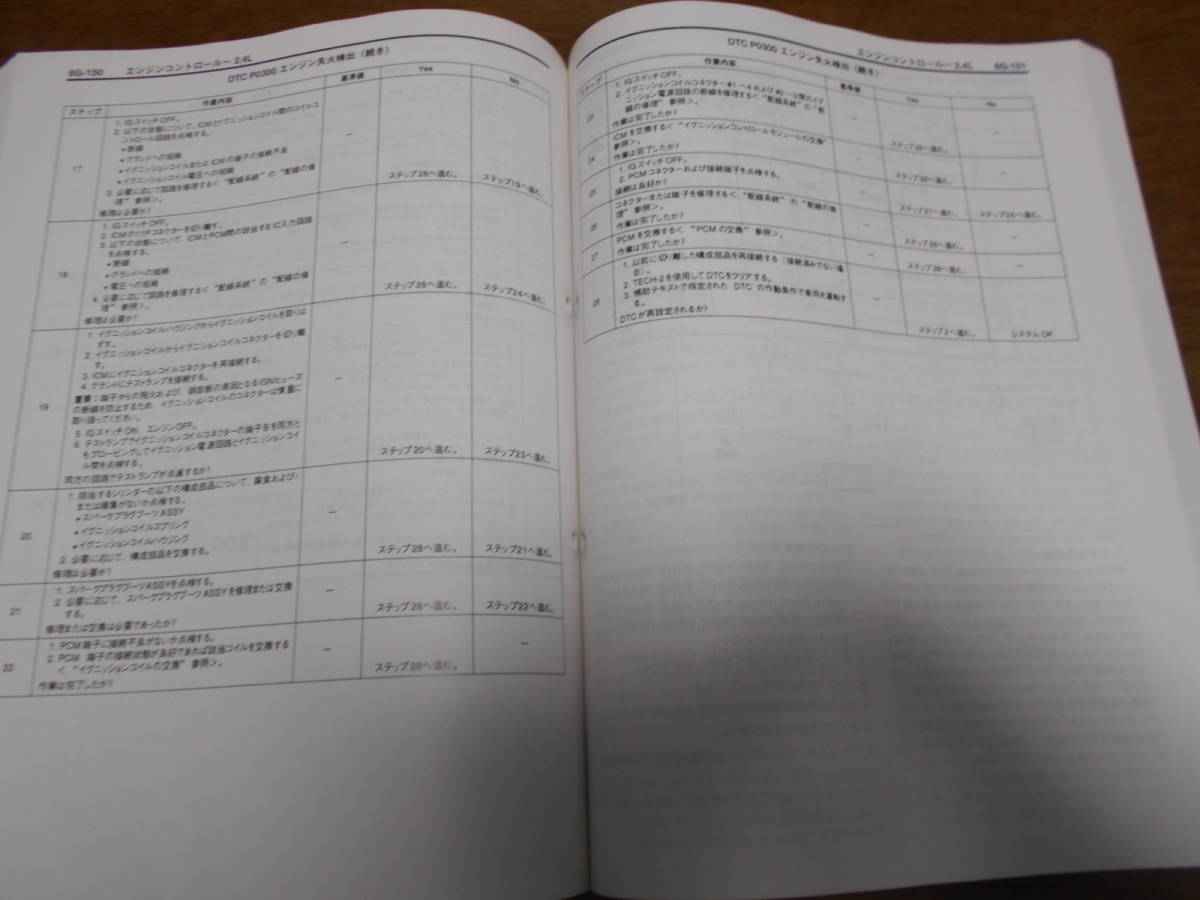 6G-150 エンジンコントロール－2.4L
DTC P0300 エンジン失火検出（続き）
ステップ 作業内容 基準値 Yes No
17
1. IGスイッチOFF。
2. 以下の状態について、ICMとイグニッションコイル間のコイルコ
ントロール回路を点検する。
•断線
•グランドへの短絡
•イグニッションコイルまたは ICM の端子の接触不良
•イグニッションコイル電圧への短絡
3. 必要に応じて回路を修理する＜“配線系統”の“配線の修
理”参照＞。
修理は必要か？
－ ステップ28へ進む。 ステップ19へ進む。
18
1. IGスイッチOFF。
2. ICMの11Pコネクターを切り離す。
3. 以下の状態について、ICMとPCM間の該当するIC入力回路
を点検する。
•断線
•グランドへの短絡
•電圧への短絡
4. 必要に応じて回路を修理する＜“配線系統”の“配線の修
理”参照＞。
修理は必要か？
－ ステップ28へ進む。 ステップ24へ進む。
19
1. イグニッションコイルハウジングからイグニッションコイルを取りは
ずす。
2. イグニッションコイルからイグニションコイルコネクターを切り離
す。
3. ICMにイグニッションコイルコネクターを再接続する。
4. グランドにテストランプを接続する。
重要：端子からの飛火および、誤診断の原因となるIGNヒューズ
の断線を防止するため、イグニッションコイルのコネクターは慎重に
取り扱ってください。
5. IGスイッチON、エンジンOFF。
6. テストランプでイグニッションコイルコネクターの端子Bを両方と
もプロービングしてイグニッション電源回路とイグニションコイ
ル間を点検する。
両方の回路でテストランプが点滅するか？
－ ステップ20へ進む。 ステップ23へ進む。
20
1. 該当するシリンダーの以下の構成部品について、腐食および/
または損傷がないか点検する。
•スパークプラグブーツASSY
•イグニッションコイルスプリング
•イグニッションコイルハウジング
2. 必要に応じて、構成部品を交換する。
修理は必要か？
－ ステップ28へ進む。 ステップ21へ進む。
21
1. スパークプラグブーツASSYを点検する。
2. 必要に応じて、スパークプラグブーツASSYを修理または交換
する。
修理または交換は必要であったか？
－ ステップ28へ進む。 ステップ22へ進む。
22
1. PCM端子に接触不良がないか点検する。
2. PCM 端子の接触状態が良好であれば該当コイルを交換する
＜“イグニッションコイルの交換”参照＞。
作業は完了したか？
－ ステップ28へ進む。 －
エンジンコントロール－2.4L 6G-151
DTC P0300 エンジン失火検出（続き）
ステップ 作業内容 基準値 Yes No
23
1. IGスイッチOFF。
2. イグニッションコイルコネクター#1－4および#2－3間のイグ
ニッション電源回路の断線を修理する＜“配線系統”の“配
線の修理”参照＞。
作業は完了したか？
－ ステップ28へ進む。 －
24
ICMを交換する＜“イグニッションコントロールモジュールの交換”
参照＞。
作業は完了したか？
－ ステップ28へ進む。 －
25
1. IGスイッチOFF。
2. PCMコネクターおよび接続端子を点検する。
接続は良好か？
－ ステップ27へ進む。 ステップ26へ進む。
26
コネクターまたは端子を修理する＜“配線系統”の“配線の修
理”参照＞。
作業は完了したか？
－ ステップ28へ進む。 －
27
PCMを交換する＜“PCMの交換”参照＞。
作業は完了したか？
－ ステップ28へ進む。 －
28
1. 以前に切り離した構成部品を再接続する（接続済みでない場
合）。
2. TECH-2を使用してDTCをクリアする。
3. 補助テキストで指定された DTC の作動条件で車両を運転す
る。
DTCが再設定されるか？
－ ステップ2へ進む。 システムOK